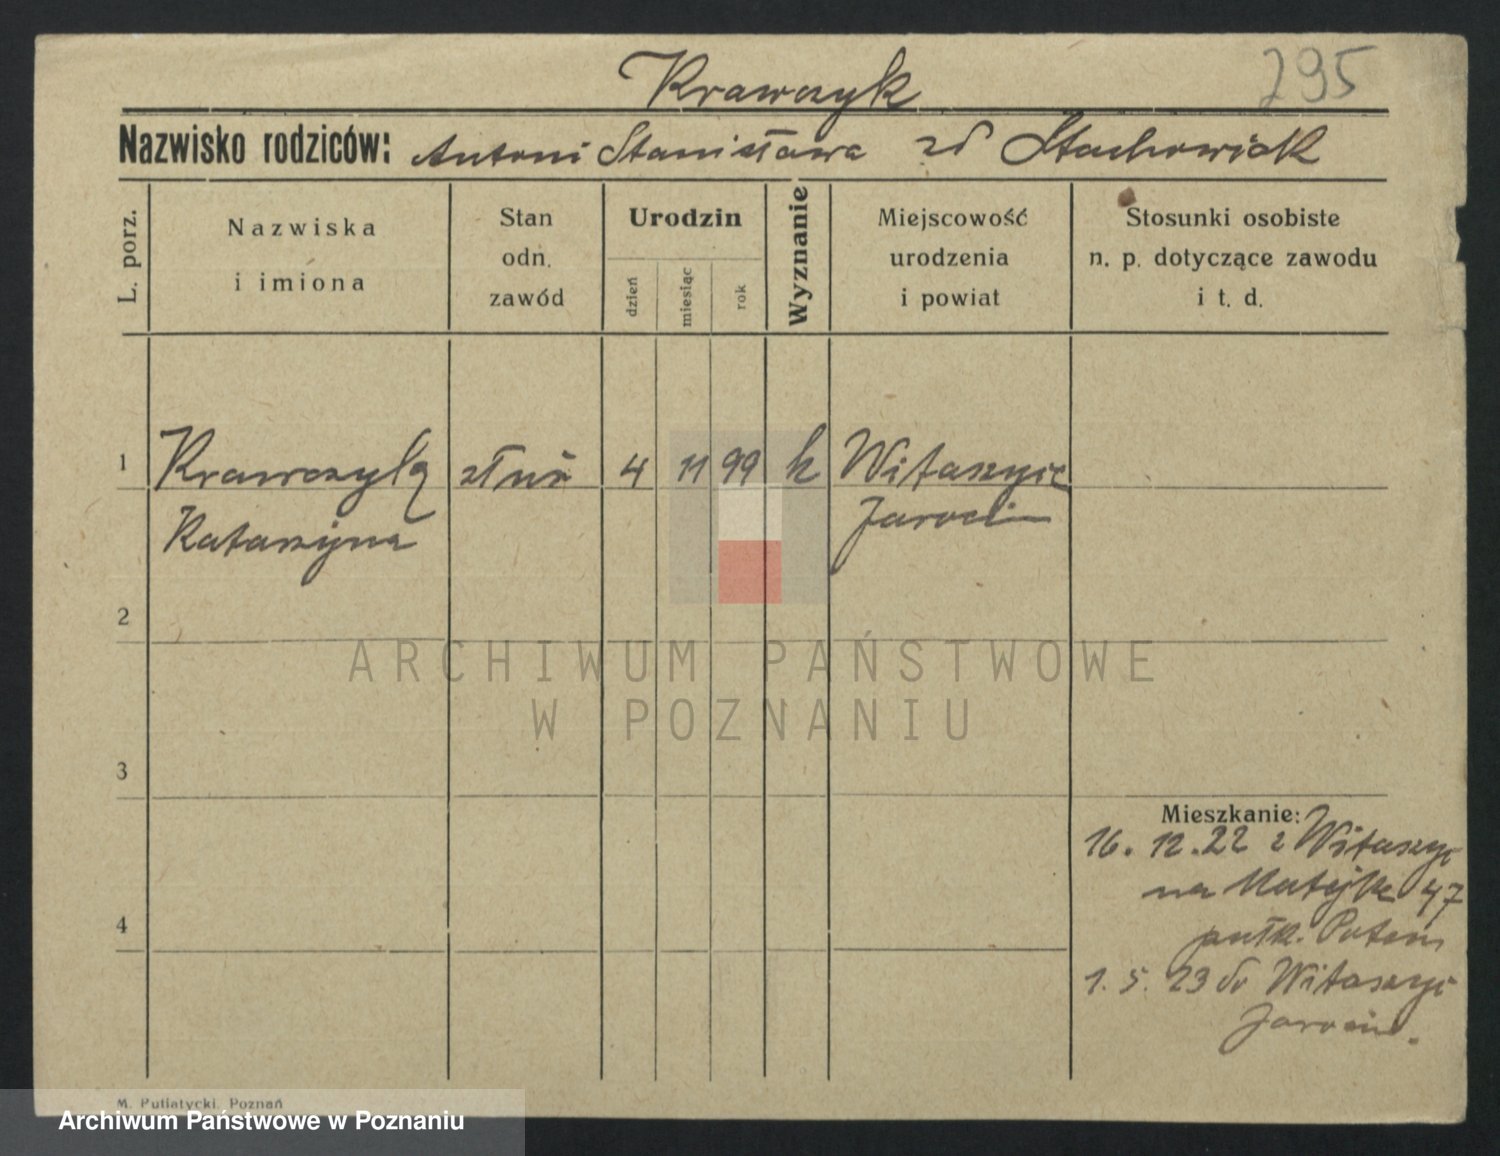 Krawczyk
295
Nazwisko rodziców: Antoni Stanisława zd Stachowiak
L. porz.
Nazwiska
i imiona
Stan
odn.
zawód
Urodzin
dzień
miesiąc
rok
Wyznanie
Miejscowość
urodzenia
i powiat
Stosunki osobiste
n. p. dotyczące zawodu
i t. d.
1 Krawczyk służ 4 11 99 k Witaszyce
Katarzyna Jarocin
2
ARCHIWUM PAŃSTWOWE
W POZNANIU
3
Mieszkanie:
16. 12. 22 z Witaszyc
na Matejki 47
4
1. 5. 23 do Witaszyc
Jarocin.
M. Putiatycki, Poznań
Archiwum Państwowe w Poznaniu